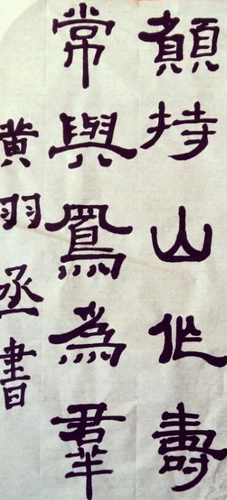 願持山作壽
常與鳳為羣
黄羽丞書